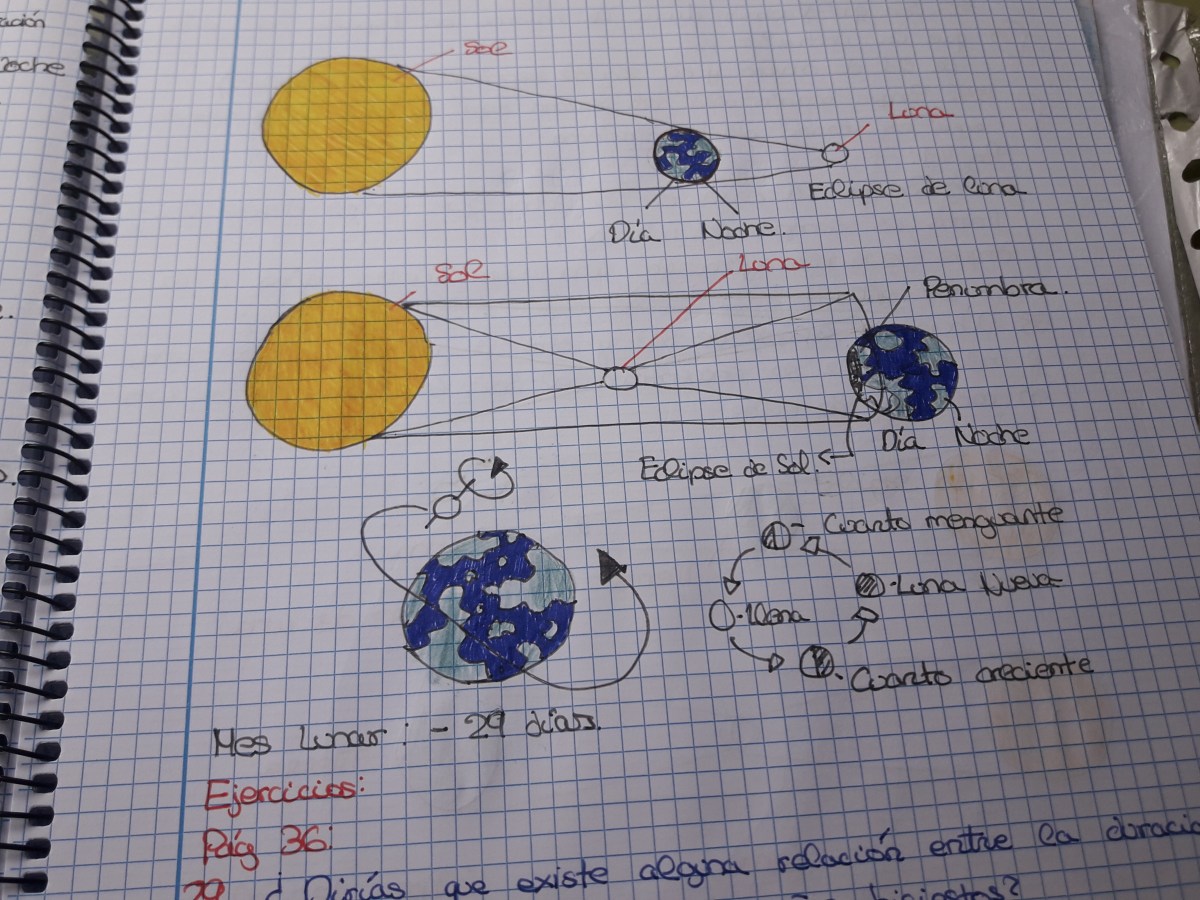 ación
oche
Sol
Luna
Eclipse de luna
Día Noche.
Sol
Luna
Penumbra.
Día Noche
Eclipse de Sol.
Cuarto menguante
Luna Nueva
Llena
Cuarto creciente
Mes Lunar: - 29 días.
Ejercicios:
Pág 36:
29 ¿Dirías que existe alguna relación entre la duració